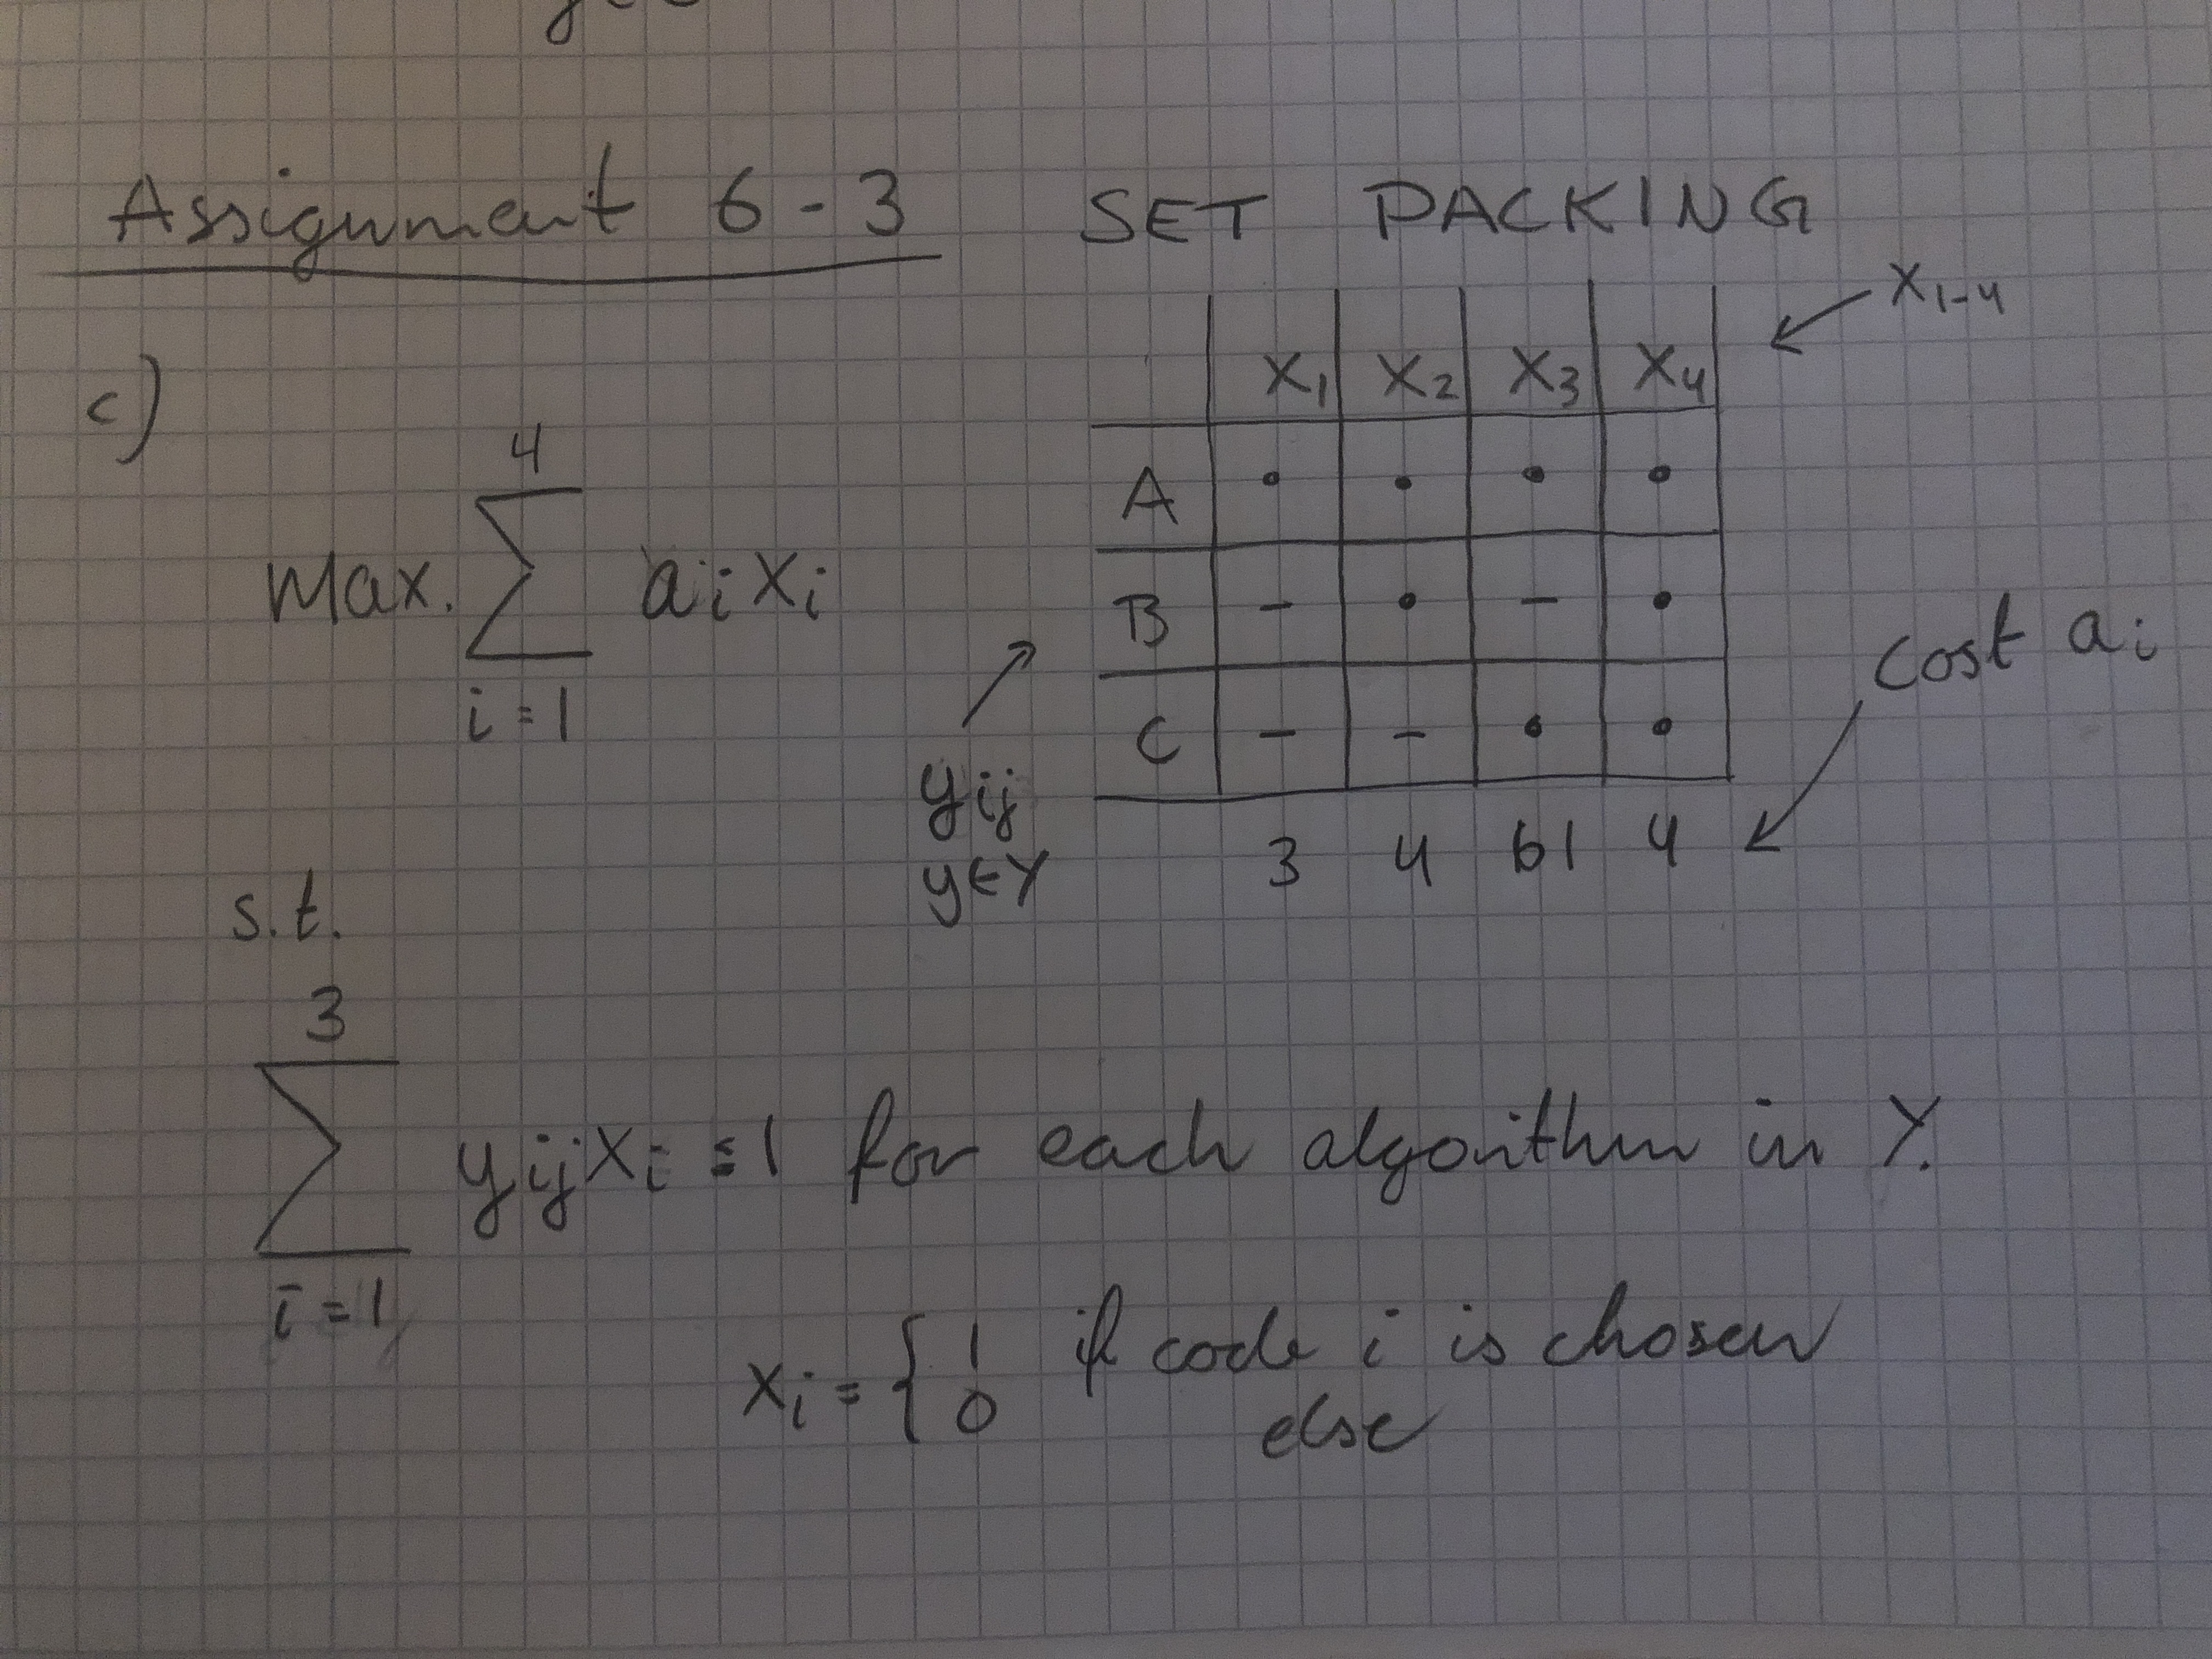 Assignment 6-3 SET PACKING
c)
x₁₋₄
x₁ x₂ x₃ x₄
A • • • •
B – • – •
C – – • •
3 4 61 4
cost aᵢ
yᵢⱼ
y∈Y
4
Max. ∑ aᵢxᵢ
i=1
s.t.
3
∑ yᵢⱼxᵢ ≤1 for each algorithm in Y.
i=1
xᵢ = { 1 if code i is chosen
0 else